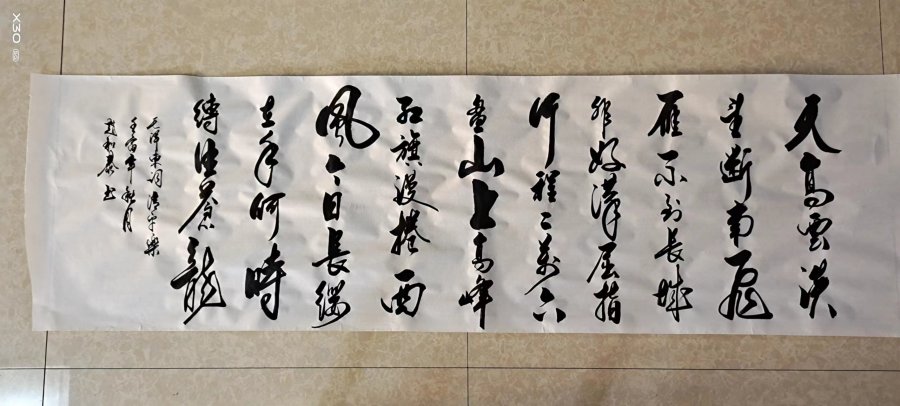 天高雲淡
望断南飛
雁不到長城
非好漢屈指
行程二萬六
盘山上高峰
红旗漫捲西
風今日長纓
在手何時
縛住蒼龍
毛泽東詞清平樂
壬寅年秋月
书
X30